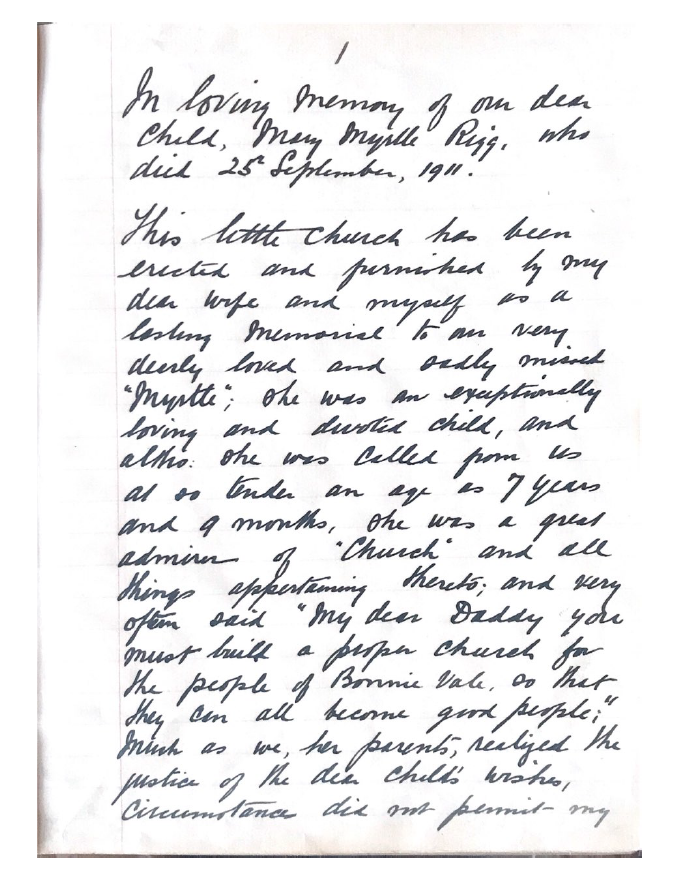 1
In loving Memory of our dear
Child, Mary Myrtle Rigg, who
died 25th September, 1911.
This little Church has been
erected and furnished by my
dear wife and myself as a
lasting Memorial to our very
deerly loved and sadly missed
"Myrtle"; she was an exceptionally
loving and devoted child, and
altho: she was Called from us
at so tender an age as 7 years
and 9 months, she was a great
admirer of "Church" and all
things appertaining thereto; and very
often said "My dear Daddy you
must build a proper Church for
the people of Bonnie Vale, so that
they can all become good people;"
Much as we, her parents, realized the
justice of the dear Child's wishes,
Circumstances did not permit my